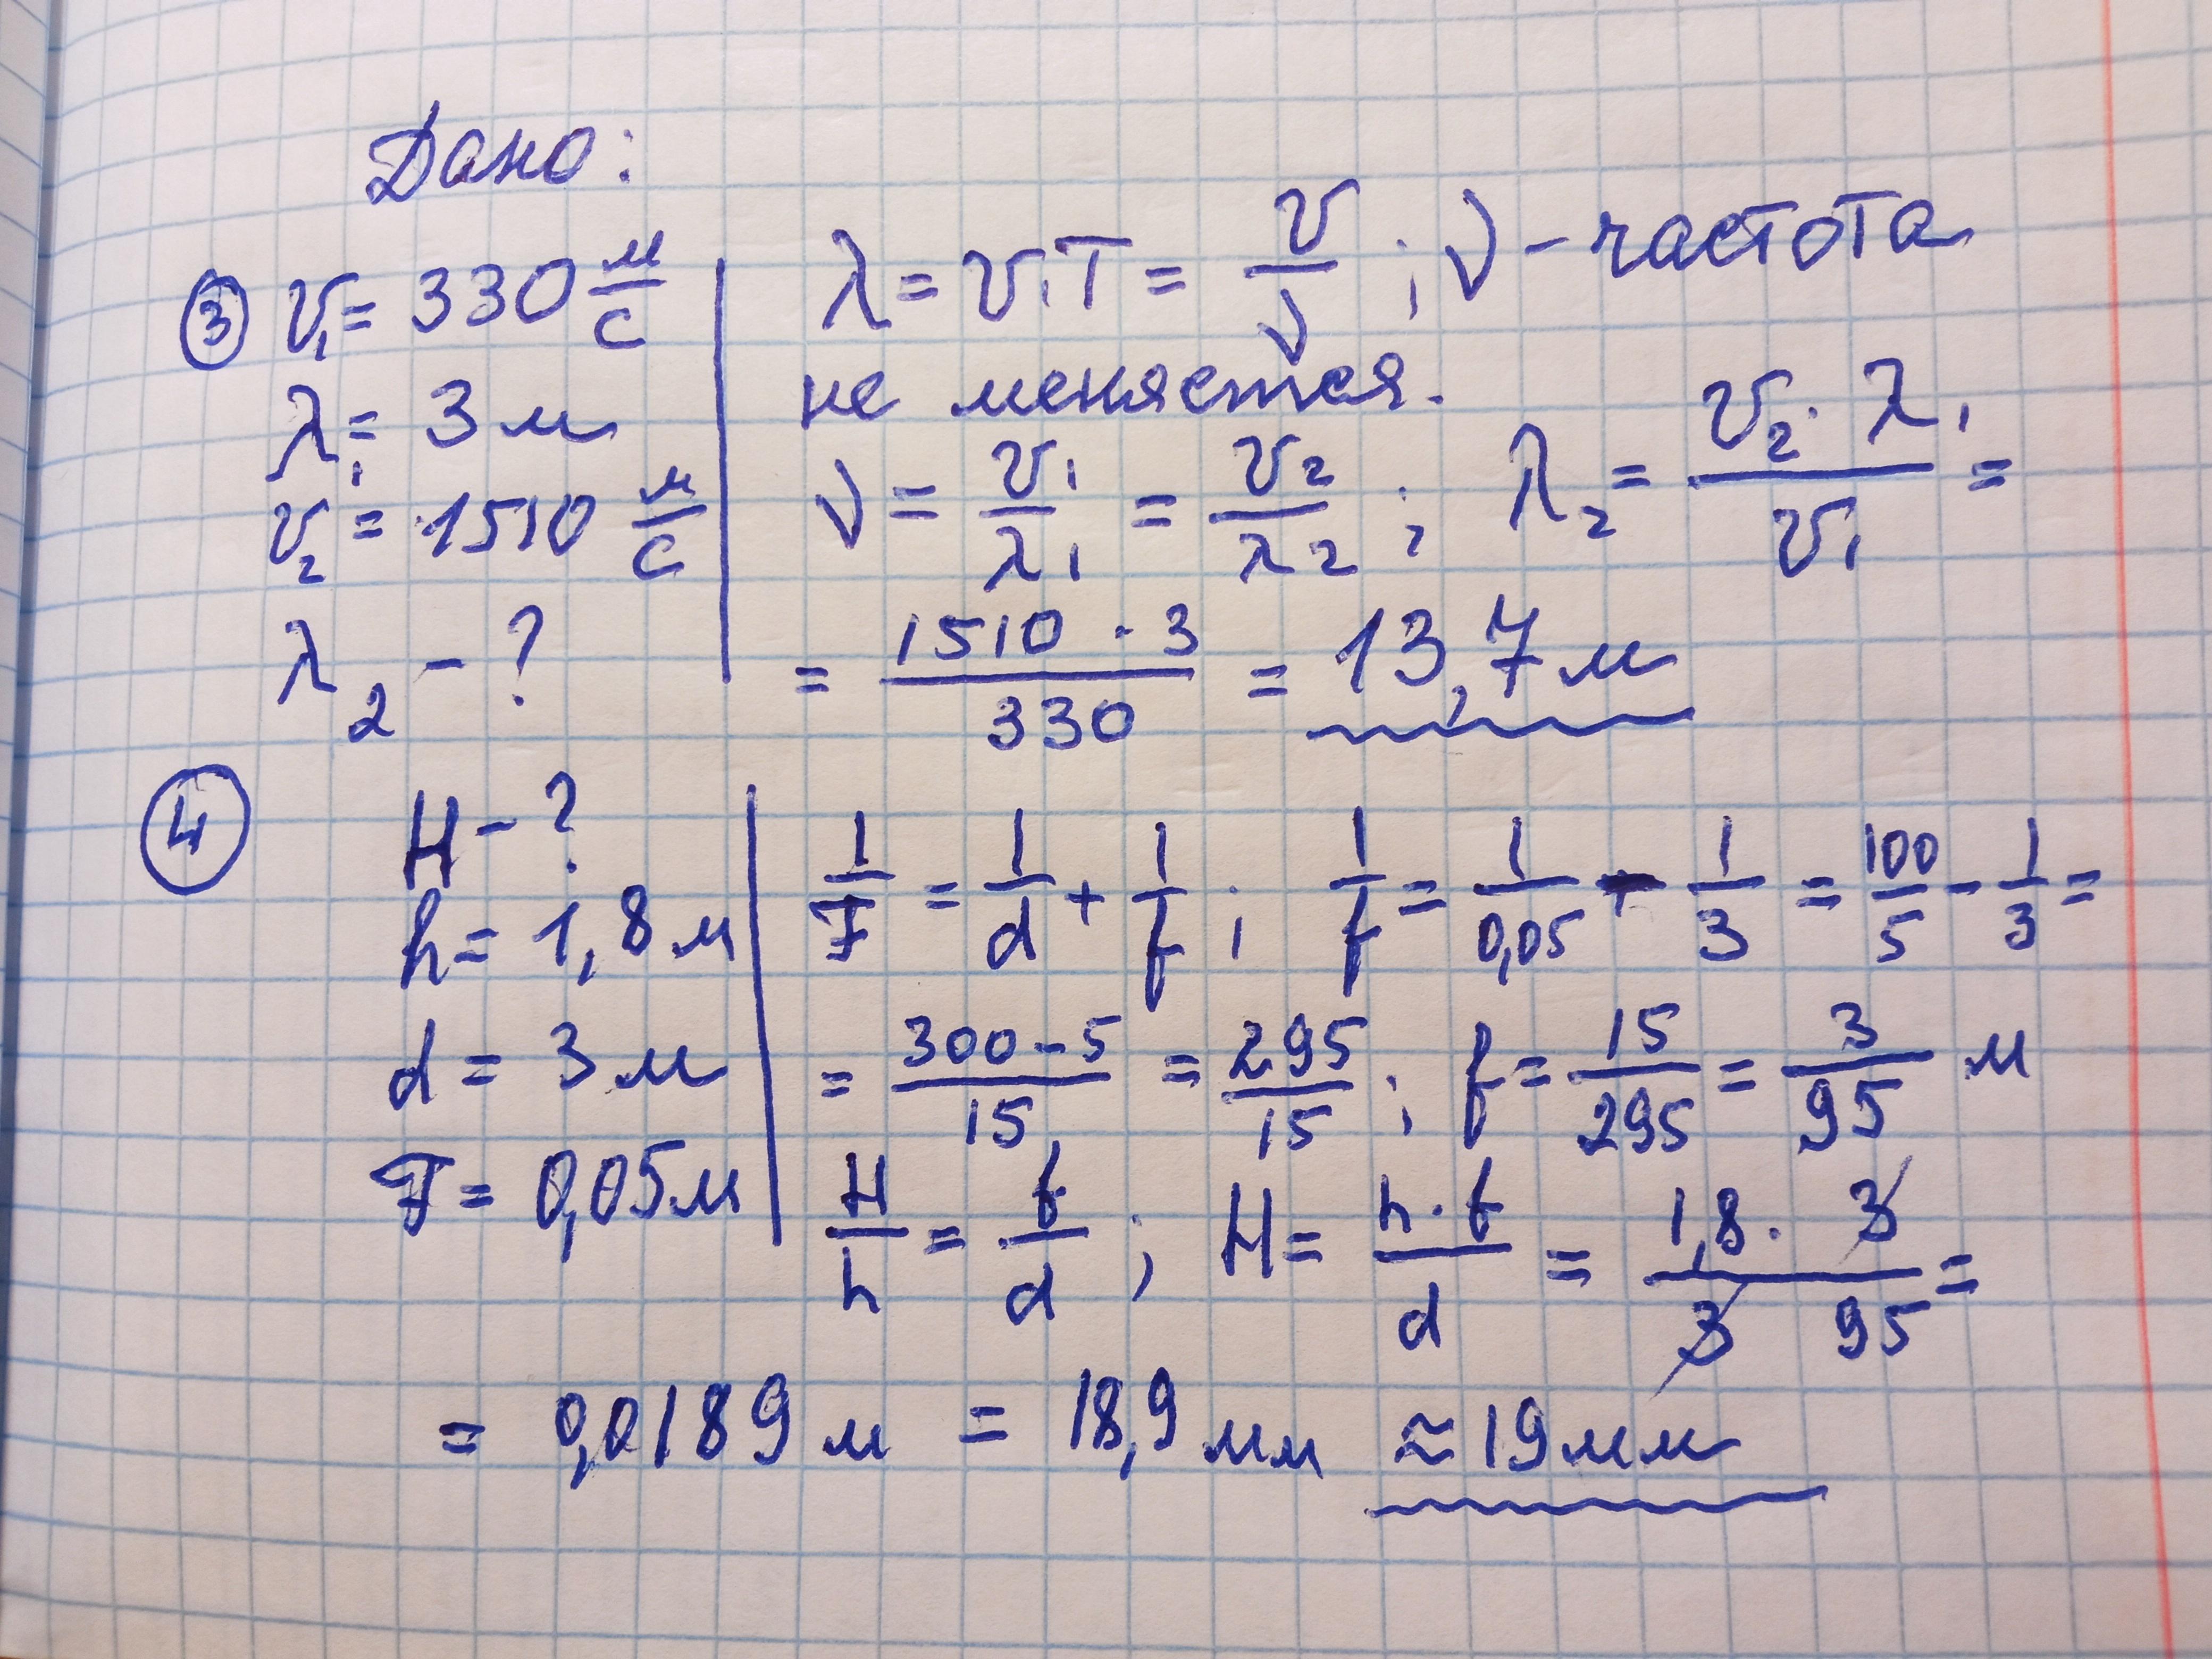 Дано:
③ v₁ = 330 м/с
λ₁ = 3 м
v₂ = 1510 м/с
λ₂ - ?
λ = v₁T = v/ν ; ν - частота
не меняется.
ν = v₁/λ₁ = v₂/λ2 ; λ₂ = v₂·λ₁/v₁ =
= 1510 · 3/330 = 13,7 м
④ H - ?
h = 1,8 м
d = 3 м
F = 0,05 м
1/F = 1/d + 1/f ; 1/f = 1/0,05 - 1/3 = 100/5 - 1/3 =
= 300-5/15 = 295/15 ; f = 15/295 = 3/95 м
H/h = f/d ; H = h·f/d = 1,8·3/3 95 =
= 0,0189 м = 18,9 мм ≈ 19 мм